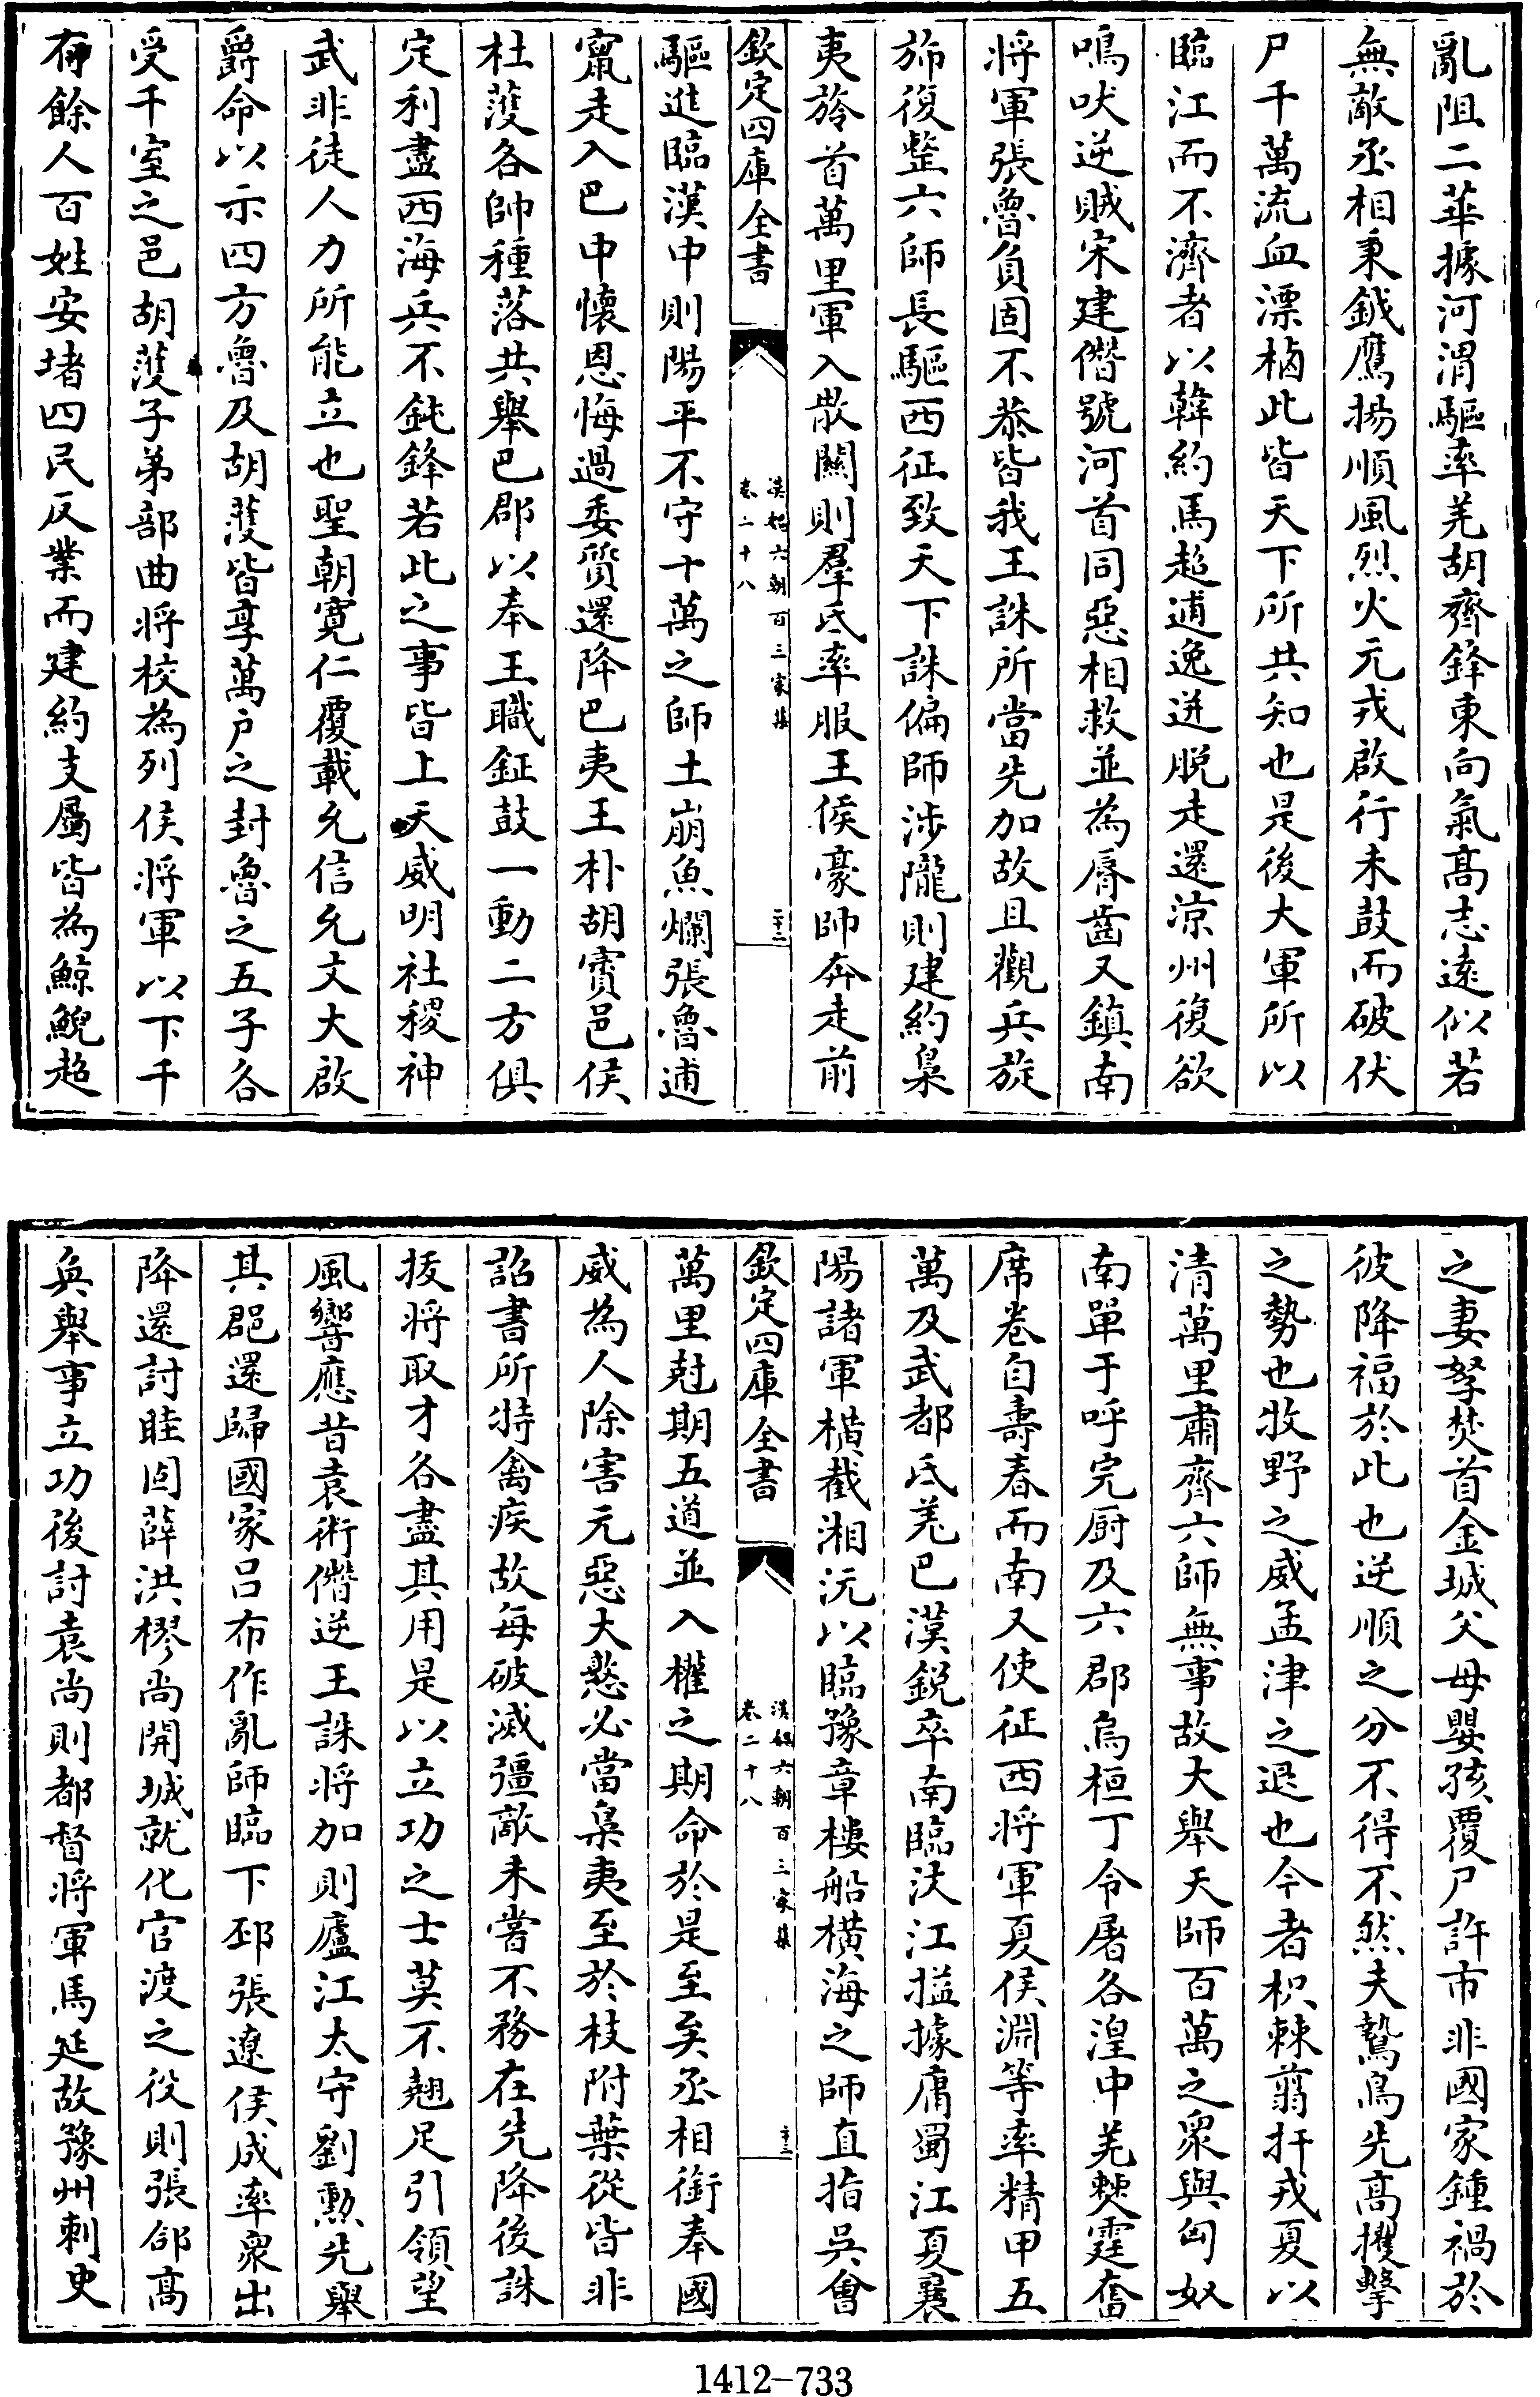 亂阻二華據河渭驅率羌胡齊鋒東向氣髙志逺似若
無敵丞相秉鉞鷹揚順風烈火元戎啟行未鼓而破伏
尸千萬流血漂樐此皆天下所共知也是後大軍所以
臨江而不濟者以韓約馬超逋逸迸脱走還凉州復欲
鳴吠逆賊宋建僭號河首同惡相救並為脣齒又鎮南
将軍張魯負固不恭皆我王誅所當先加故且觀兵旋
斾復整六師長驅西征致天下誅偏師渉隴則建約梟
夷旍首萬里軍入散關則羣氐率服王侯豪帥奔走前
欽定四庫全書
漢魏六朝百三家集
卷二十八
二十二
驅進臨漢中則陽平不守十萬之師土崩魚爛張魯逋
竄走入巴中懷恩悔過委質還降巴夷王朴胡賨邑侯
杜濩各帥種落共舉巴郡以奉王職鉦鼓一動二方俱
定利盡西海兵不鈍鋒若此之事皆上天威明社稷神
武非徒人力所能立也聖朝寛仁覆載允信允文大啟
爵命以示四方魯及胡濩皆享萬户之封魯之五子各
受千室之邑胡濩子弟部曲将校為列侯将軍以下千
有餘人百姓安堵四民反業而建約支屬皆為鯨鯢超
之妻孥焚首金城父母嬰孩覆尸許市非國家鍾禍於
彼降福於此也逆順之分不得不然夫鷙鳥先髙攫擊
之勢也牧野之威孟津之退也今者枳棘翦扞戎夏以
清萬里肅齊六師無事故大舉天師百萬之衆與匈奴
南單于呼完厨及六郡烏桓丁令屠各湟中羌僰霆奮
席卷自壽春而南又使征西将軍夏侯淵等率精甲五
萬及武都氐羌巴漢鋭卒南臨汶江搤據庸蜀江夏襄
陽諸軍横截湘沅以臨豫章樓船横海之師直指吳會
欽定四庫全書
漢魏六朝百三家集
卷二十八
二十三
萬里尅期五道並入權之期命於是至矣丞相銜奉國
威為人除害元惡大憝必當梟夷至於枝附葉從皆非
詔書所特禽疾故每破滅彊敵未嘗不務在先降後誅
拔将取才各盡其用是以立功之士莫不翹足引領望
風響應昔袁術僭逆王誅将加則廬江太守劉勲先舉
其郡還歸國家吕布作亂師臨下邳張遼侯成率衆出
降還討眭固薛洪樛尚開城就化官渡之役則張郃髙
奐舉事立功後討袁尚則都督将軍馬延故豫州刺史
1412-733